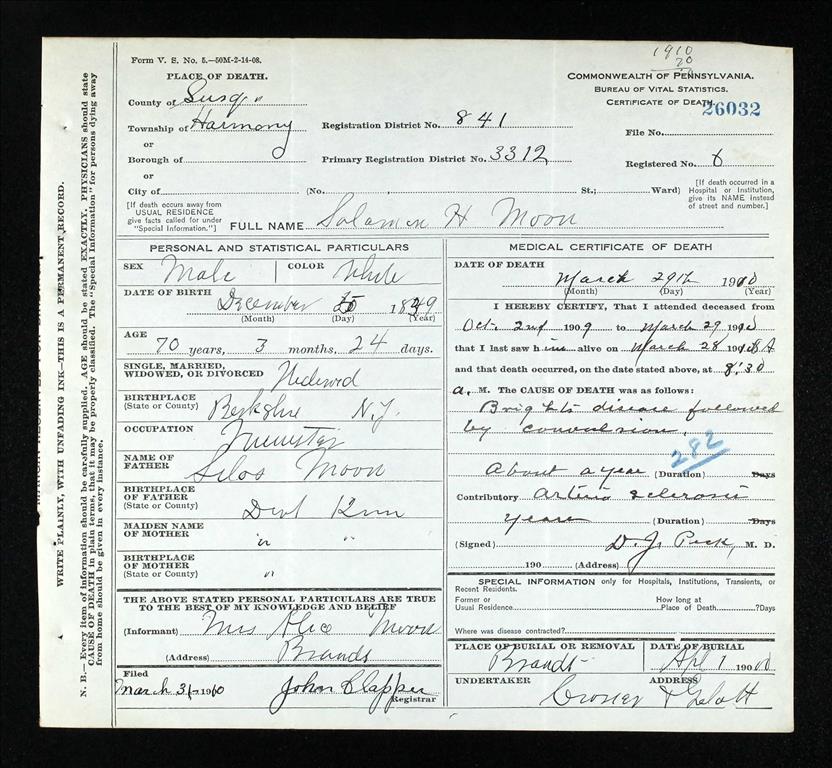 1910
20
Form V. S. No. 5.—50M-2-14-08.
PLACE OF DEATH.
County of Susq.
Township of Harmony
or
Borough of
or
City of
[If death occurs away from
USUAL RESIDENCE
give facts called for under
"Special Information."]
Registration District No. 841
Primary Registration District No. 3312
(No. , St.; Ward)
COMMONWEALTH OF PENNSYLVANIA.
BUREAU OF VITAL STATISTICS.
CERTIFICATE OF DEATH.
26032
File No.
Registered No. 6
[If death occurred in a
Hospital or Institution,
give its NAME instead
of street and number.]
FULL NAME Solomon H Moon
PERSONAL AND STATISTICAL PARTICULARS
SEX Male COLOR White
DATE OF BIRTH December 5 1839
(Month) (Day) (Year)
AGE
70 years, 3 months, 24 days.
SINGLE, MARRIED,
WIDOWED, OR DIVORCED Widowed
BIRTHPLACE
(State or County) Berkshire N.Y.
OCCUPATION
NAME OF
FATHER Silas Moon
BIRTHPLACE
OF FATHER
(State or County) Dont Know
MAIDEN NAME
OF MOTHER " "
BIRTHPLACE
OF MOTHER
(State or County) "
THE ABOVE STATED PERSONAL PARTICULARS ARE TRUE
TO THE BEST OF MY KNOWLEDGE AND BELIEF
(Informant) Mrs Alice Moore
(Address) Brandt
Filed
March 31-1910 John Clapper
Registrar
MEDICAL CERTIFICATE OF DEATH
DATE OF DEATH
March 29th 1910
(Month) (Day) (Year)
I HEREBY CERTIFY, That I attended deceased from
Oct. 2nd 1909 to March 29 1910
that I last saw him alive on March 28 1910
and that death occurred, on the date stated above, at 8:30
a. M. The CAUSE OF DEATH was as follows:
Brights disease followed
by convulsion,
282
About a year (Duration) Days
Contributory Arterio sclerosis
years (Duration) Days
(Signed) D. J. Peck, M. D.
190 (Address)
SPECIAL INFORMATION only for Hospitals, Institutions, Transients, or
Recent Residents.
Former or
Usual Residence
How long at
Place of Death ?Days
Where was disease contracted?
PLACE OF BURIAL OR REMOVAL
Brandt
DATE OF BURIAL
Apl 1 1910
UNDERTAKER
WRITE PLAINLY, WITH UNFADING INK—THIS IS A PERMANENT RECORD.
N. B.—Every item of information should be carefully supplied. AGE should be stated EXACTLY. PHYSICIANS should state
CAUSE OF DEATH in plain terms, that it may be properly classified. The "Special Information" for persons dying away
from home should be given in every instance.